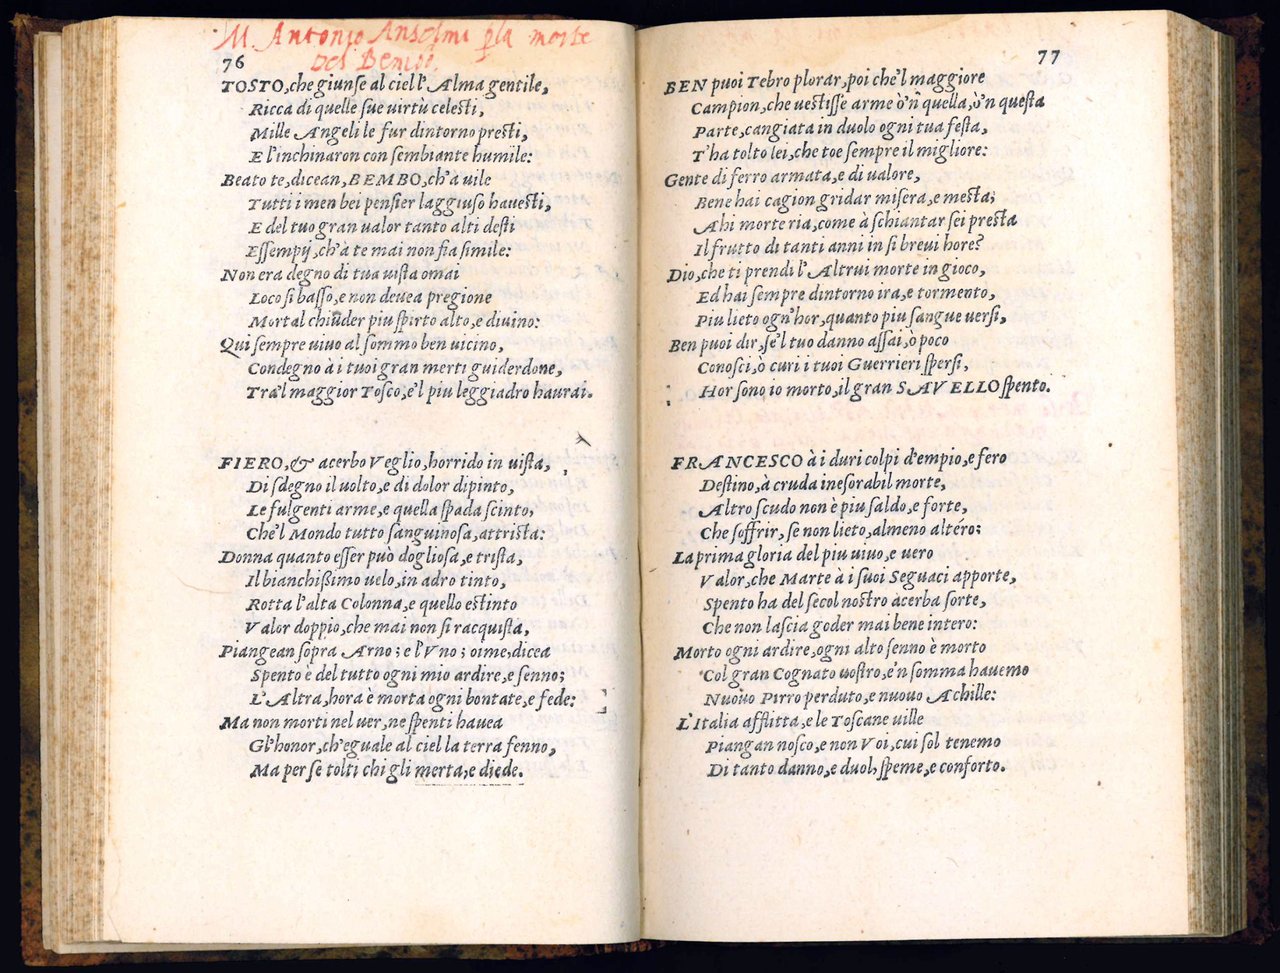 M. Antonio Anselmi p la morte
del Bembo.
76
TOSTO, che giunse al ciel l'Alma gentile,
Ricca di quelle sue virtù celesti,
Mille Angeli le fur dintorno presti,
E l'inchinaron con sembiante humile:
Beato te, dicean, BEMBO, ch'à vile
Tutti i men bei pensier laggiuso havesti,
E del tuo gran valor tanto alti desti
Essempij, ch'à te mai non fia simile:
Non era degno di tua vista omai
Loco si basso, e non devea pregione
Mortal chiuder piu spirto alto, e divino:
Qui sempre vivo al sommo ben vicino,
Condegno à i tuoi gran merti guiderdone,
Tra'l maggior Tosco, e'l piu leggiadro haurai.
FIERO, & acerbo Veglio, horrido in vista,
Di sdegno il volto, e di dolor dipinto,
Le fulgenti arme, e quella spada scinto,
Che'l Mondo tutto sanguinosa, attrista:
Donna quanto esser può dogliosa, e trista,
Il bianchißimo velo, in adro tinto,
Rotta l'alta Colonna, e quello estinto
Valor doppio, che mai non si racquista,
Piangean sopra Arno; e l'Uno; oime, dicea
Spento è del tutto ogni mio ardire, e senno;
L'Altra, hora è morta ogni bontate, e fede:
Ma non morti nel ver, ne spenti havea
Gl'honor, ch'eguale al ciel la terra fenno,
Ma per se tolti chi gli merta, e diede.
77
BEN puoi Tebro plorar, poi che'l maggiore
Campion, che vestisse arme ò'n quella, ò'n questa
Parte, cangiata in duolo ogni tua festa,
T'ha tolto lei, che toe sempre il migliore:
Gente di ferro armata, e di valore,
Bene hai cagion gridar misera, e mesta;
Ahi morte ria, come à schiantar sei presta
Il frutto di tanti anni in si brevi hore?
Dio, che ti prendi l'Altrui morte in gioco,
Ed hai sempre dintorno ira, e tormento,
Piu lieto ogn'hor, quanto piu sangue versi,
Ben puoi dir, se'l tuo danno assai, o poco
Conosci, ò curi i tuoi Guerrieri spersi,
Hor sono io morto, il gran SAVELLO spento.
FRANCESCO à i duri colpi d'empio, e fero
Destino, à cruda inesorabil morte,
Altro scudo non è piu saldo, e forte,
Che soffrir, se non lieto, almeno altéro:
La prima gloria del piu vivo, e vero
Valor, che Marte à i suoi Seguaci apporte,
Spento ha del secol nostro àcerba sorte,
Che non lascia goder mai bene intero:
Morto ogni ardire, ogni alto senno è morto
Col gran Cognato vostro, e'n somma havemo
Nuovo Pirro perduto, e nuovo Achille:
L'Italia afflitta, e le Toscane ville
Piangan nosco, e non Voi, cui sol tenemo
Di tanto danno, e duol, speme, e conforto.